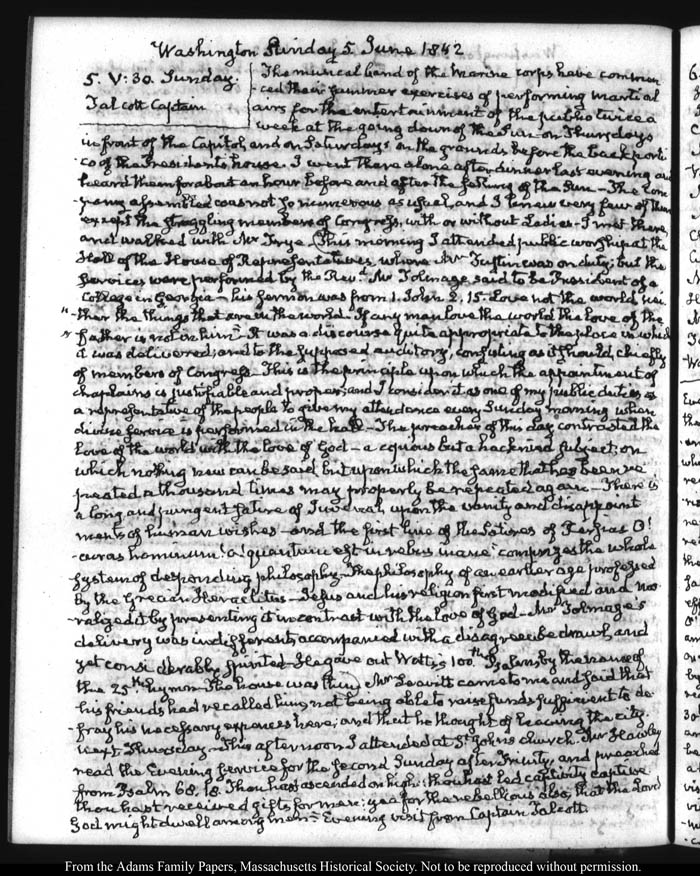 Washington Sunday 5. June 1842
5. V:30. Sunday.
Talcott Captain
The musical band of the Marine corps have commen
ced their summer exercises of performing martial
airs for the entertainment of the public twice a
week at the going down of the Sun on Thursdays
in front of the Capitol, and on Saturdays on the grounds before the back porti
co of the Presidents house. I went there alone after dinner last evening and
heard them for about an hour before and after the setting of the Sun - The com
pany assembled was not so numerous as usual, and I knew very few of them
except the straggling members of Congress, with or without Ladies. I met there,
and walked with Mr Frye. This morning I attended public worship at the
Hall of the House of Representatives, where Mr Tustin was on duty; but the
services were performed by the Revd. Mr Tolmage said to be President of a
College in Georgia - his sermon was from 1. John 2, 15. Love not the world, nei
"ther the things that are in the world. If any man love the world the love of the
" father is not in him - It was a discourse quite appropriate to the place in which
it was delivered, and to the supposed auditory, consisting as it should, chiefly
of members of Congress. This is the principle upon which the appointment of
chaplains is justifiable and proper, and I consider it as one of my public duties as
a representative of the people to give my attendance every Sunday morning when
divine service is performed in the hall - The preacher of this day contrasted the
love of the world with the love of God - a copious but a hacknied subject, on
which nothing new can be said but upon which the same that has been re
peated a thousand times may properly be repeated again - There is
a long and pungent satire of Juvenal, upon the vanity and disappoint
ments of human wishes - and the first line of the Satires of Persius O!
curas hominum! O! quantum est in rebus inane! comprizes the whole
system of desponding philosophy - The philosophy of an earlier age professed
by the Grecian Heraclitus - Jesus and his religion first modified and mo
ralized it by presenting it in contrast with the love of God - Mr Tolmage's
delivery was indifferent, accompanied with a disagreeable drawl, and
yet considerably spirited - He gave out Watts's 100th. Psalm, by the name of
the 25th. hymn - The house was thin. Mr Leavitt came to me and said that
his friends had recalled him, not being able to raise funds sufficient to de
fray his necessary expences here; and that he thought of leaving the city
next Thursday - This afternoon I attended at St. John's church. Mr Hawley
read the Evening service for the second Sunday after Trinity, and preached
from Psalm 68, 18. Thou hast ascended on high: thou hast led captivity captive
thou hast received gifts for men: yea for the rebellious also, that the Lord
God might dwell among men - Evening visit from Captain Talcott.
From the Adams Family Papers, Massachusetts Historical Society. Not to be reproduced without permission.